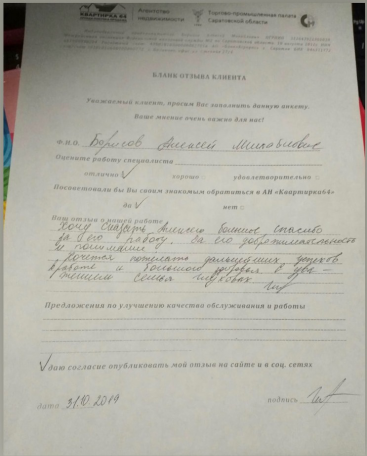 КВАРТИРКА 64
Агентство
недвижимости
Торгово-промышленная палата
Саратовской области
БЛАНК ОТЗЫВА КЛИЕНТА
Уважаемый клиент, просим Вас заполнить данную анкету.
Ваше мнение очень важно для нас!
Ф.И.О. Борисов Алексей Михайлович
Оцените работу специалиста
отлично ✓ хорошо удовлетворительно
Посоветовали бы Вы своим знакомым обратиться в АН «Квартирка64»
да нет
Ваш отзыв о нашей работе
Хочу сказать Алексею большое спасибо
за его работу, за его доброжелательность
и понимание.
Хочется пожелать дальнейших успехов
в работе и большого здоровья. С ува-
жением семья
Предложения по улучшению качества обслуживания и работы
✓ даю согласие опубликовать мой отзыв на сайте и в соц. сетях
дата 31.10.2019 подпись